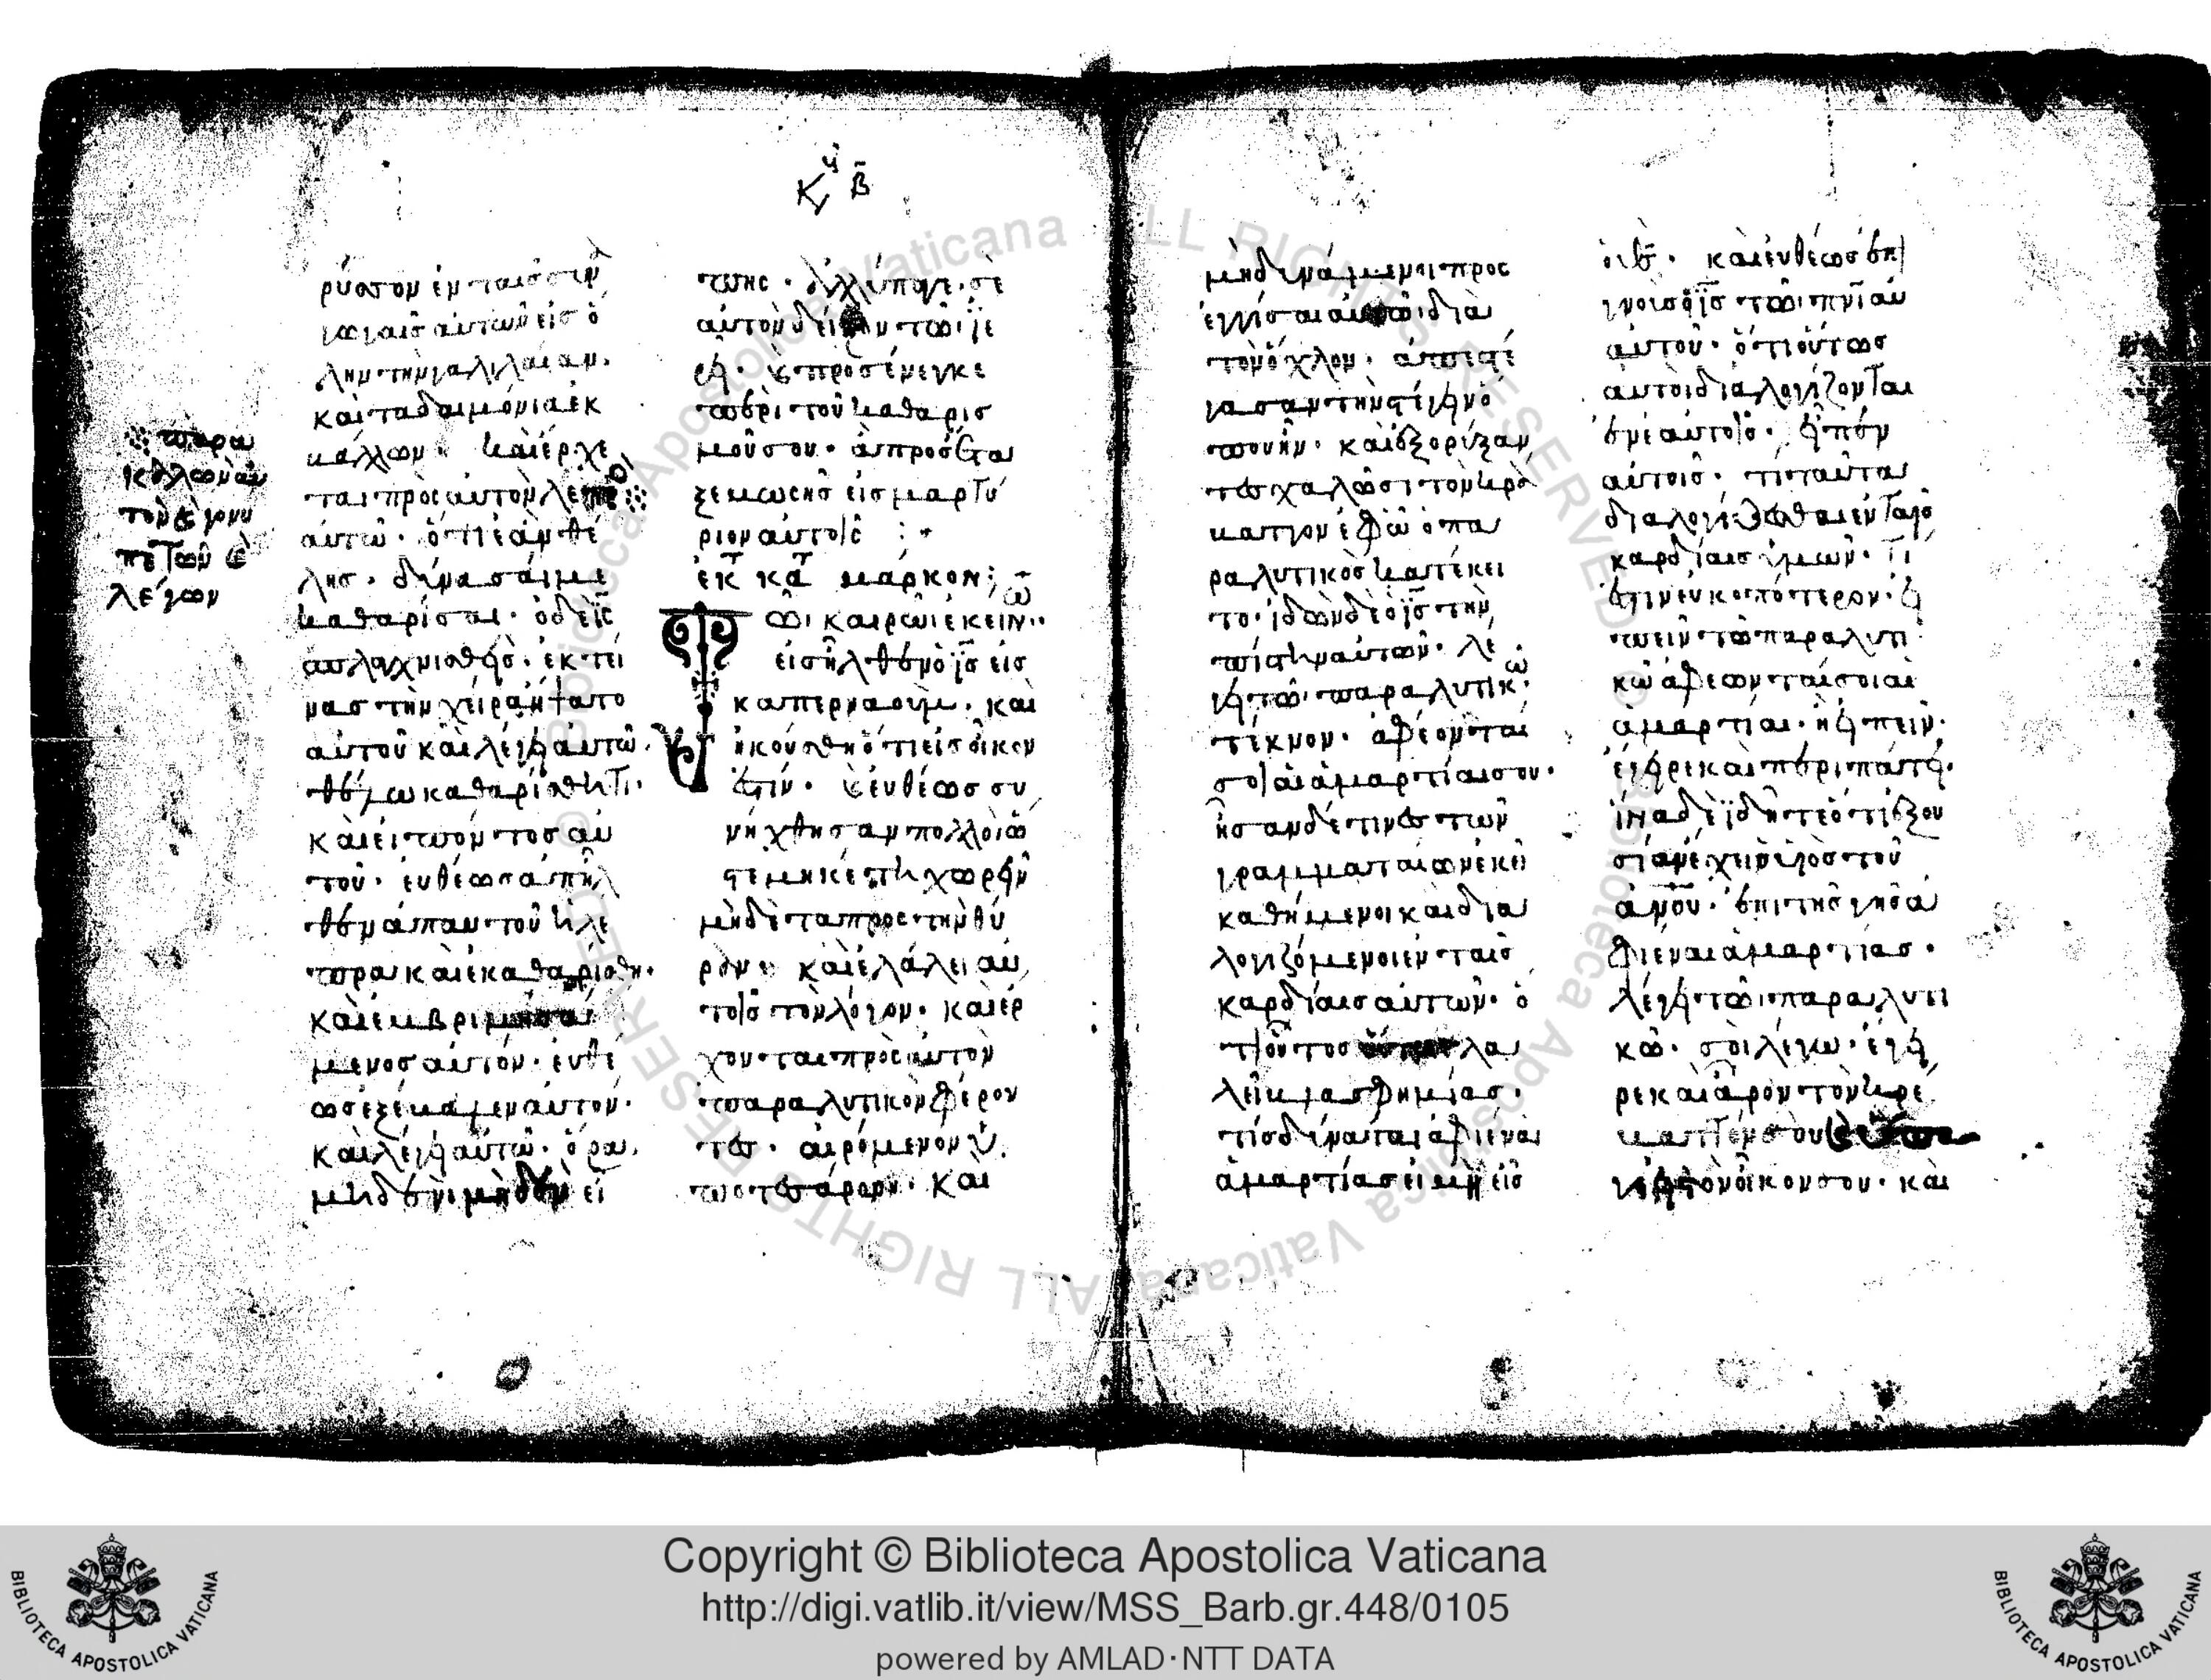 Κυ Β̄
ρύσσων ἐν ταῖς συν
αγωγαῖς αὐτῶν εἰς ὅ
λην τὴν γαλιλαίαν.
καὶ τὰ δαιμόνια ἐκ
βάλλων. καὶ ἔρχε
ται πρὸς αὐτὸν λεπρὸ
αὐτῶ. ὅτι ἐὰν θέ
λης. δύνασαί με
καθαρίσαι. ὁ δὲ ι̅ς̅
σπλαχνισθεὶς. ἐκτεί
νας τὴν χεῖρα ἥψατο
αὐτοῦ καὶ λέγει αὐτῶ.
θέλω καθαρίσθητι.
καὶ εἰπόντος αὐ
τοῦ. εὐθέως ἀπῆλ
θεν ἀπ αὐτοῦ ἡ λέ
πρα καὶ ἐκαθαρίσθη.
καὶ ἐμβριμησά
μενος αὐτὸν. εὐθέ
ως ἐξέβαλεν αὐτόν.
καὶ λέγει αὐτῶ. ὅρα.
μηδενὶ μηδὲν εἴ
παρα
καλῶν αὐ
τὸν καὶ γονυ
πετῶν καὶ
λέγων
πης. ἀλλ ὕπαγε. σε
αὐτὸν δεῖξον τῶι ἱε
ρεῖ. καὶ προσένεγκε
περὶ τοῦ καθαρισ
μοῦ σου. ἃ προσέτα
ξε μωσῆς εἰς μαρτύ
ριον αὐτοῖς :+
ἐκ τ κα τ μάρκον;
Τῶι καιρῶι ἐκείνω
εἰσῆλθεν ὁ ι̅ς̅ εἰς
καπερναούμ. καὶ
ἠκούσθη ὅτι εἰς οἶκον
ἐστίν. καὶ εὐθέως συ
νήχθησαν πολλοὶ ὥ
στε μηκέτι χωρεῖν
μηδὲ τὰ πρὸς τὴν θύ
ραν. καὶ ἐλάλει αὐ
τοῖς τὸν λόγον. καὶ ἔρ
χονται πρὸς αὐτὸν
παραλυτικὸν φέρον
τες. αἰρόμενον ὑ
πὸ τεσσάρων. καὶ
μὴ δυνάμενοι προς
εγγίσαι αὐτῶι διὰ
τὸν ὄχλον. ἀπεστέ
γασαν τὴν στέγην ὅ
που ἦν. καὶ ἐξορύξαν
τες χαλῶσι τὸν κρά
βατον ἐφ ὧ ὁ πα
ραλυτικὸς κατέκει
το. ἰδὼν δὲ ὁ ι̅ς̅ τὴν
πίστιν αὐτῶν. λέ
γει τῶ παραλυτικῶ.
τέκνον. ἀφέονται
σοὶ αἱ ἁμαρτίαι σου.
ἦσαν δέ τινες τῶν
γραμματαίων ἐκεῖ
καθήμενοι καὶ δια
λογιζόμενοι ἐν ταῖς
καρδίαις αὐτῶν. τί
οὗτος οὕτως λα
λεῖ βλασφημίας.
τίς δύναται ἀφιέναι
ἁμαρτίας εἰ μὴ εἷς
ὁ θ̅ς̅. καὶ εὐθέως ἐπι
γνοὺς ὁ ι̅ς̅ τῶι πνι̅ αὐ
αὐτοῦ. ὅτι οὕτως
αὐτοὶ διαλογίζονται
ἐν ἑαυτοῖς. εἶπεν
αὐτοῖς. τί ταῦτα
διαλογίζεσθαι ἐν ταῖς
καρδίαις ὑμῶν. τί
ἐστιν εὐκοπότερον. εἰ
πεῖν τῶ παραλυτι
κῶ ἀφέωνταί σοι αἱ
ἁμαρτίαι. ἢ εἰπεῖν.
ἔγειρε καὶ περιπάτει.
ἵνα δὲ ἴδητε ὅτι ἐξου
σίαν ἔχει ὁ υἱὸς τοῦ
α̅ν̅ο̅υ̅. ἐπὶ τῆς γῆς ἀ
φιέναι ἁμαρτίας.
λέγει τῶι παραλυτι
κῶ. σοὶ λέγω. ἔγει
ρε καὶ ἆρον τὸν κρά
βαττόν σου καὶ ὕπα
γε εἰς τὸν οἶκον σου. καὶ
Copyright © Biblioteca Apostolica Vaticana
http://digi.vatlib.it/view/MSS_Barb.gr.448/0105
powered by AMLAD·NTT DATA
BIBLIOTECA APOSTOLICA VATICANA
BIBLIOTECA APOSTOLICA VATICANA